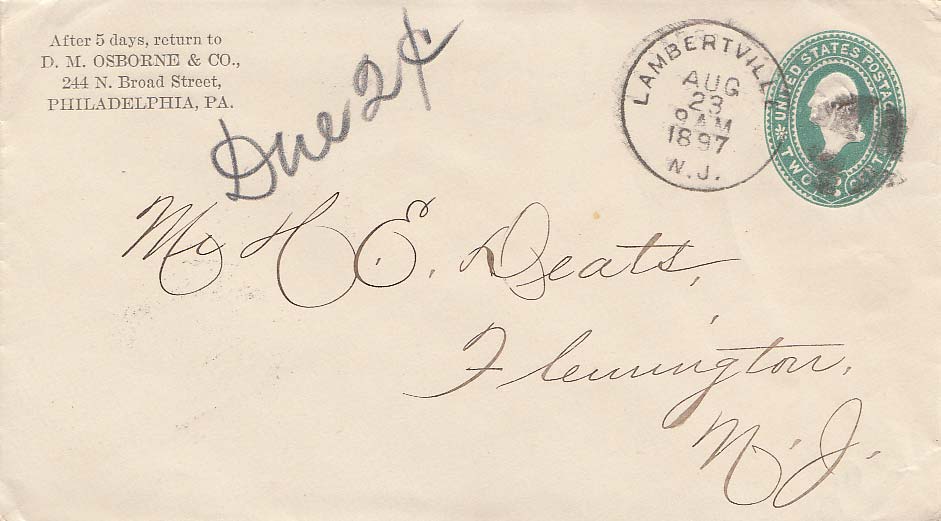 After 5 days, return to
D. M. OSBORNE & CO.,
244 N. Broad Street,
PHILADELPHIA, PA.
Due 2¢
LAMBERTVILLE
AUG
23
9 AM
1897
N.J.
UNITED STATES POSTAGE
TWO CENTS
Mr H. E. Deats,
Flemington,
N. J.